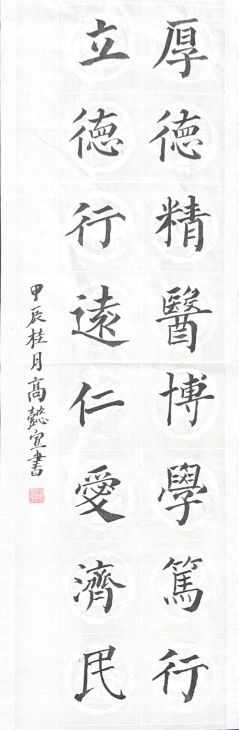 厚德精醫博學篤行
立德行遠仁愛濟民
甲辰桂月高懿宣書